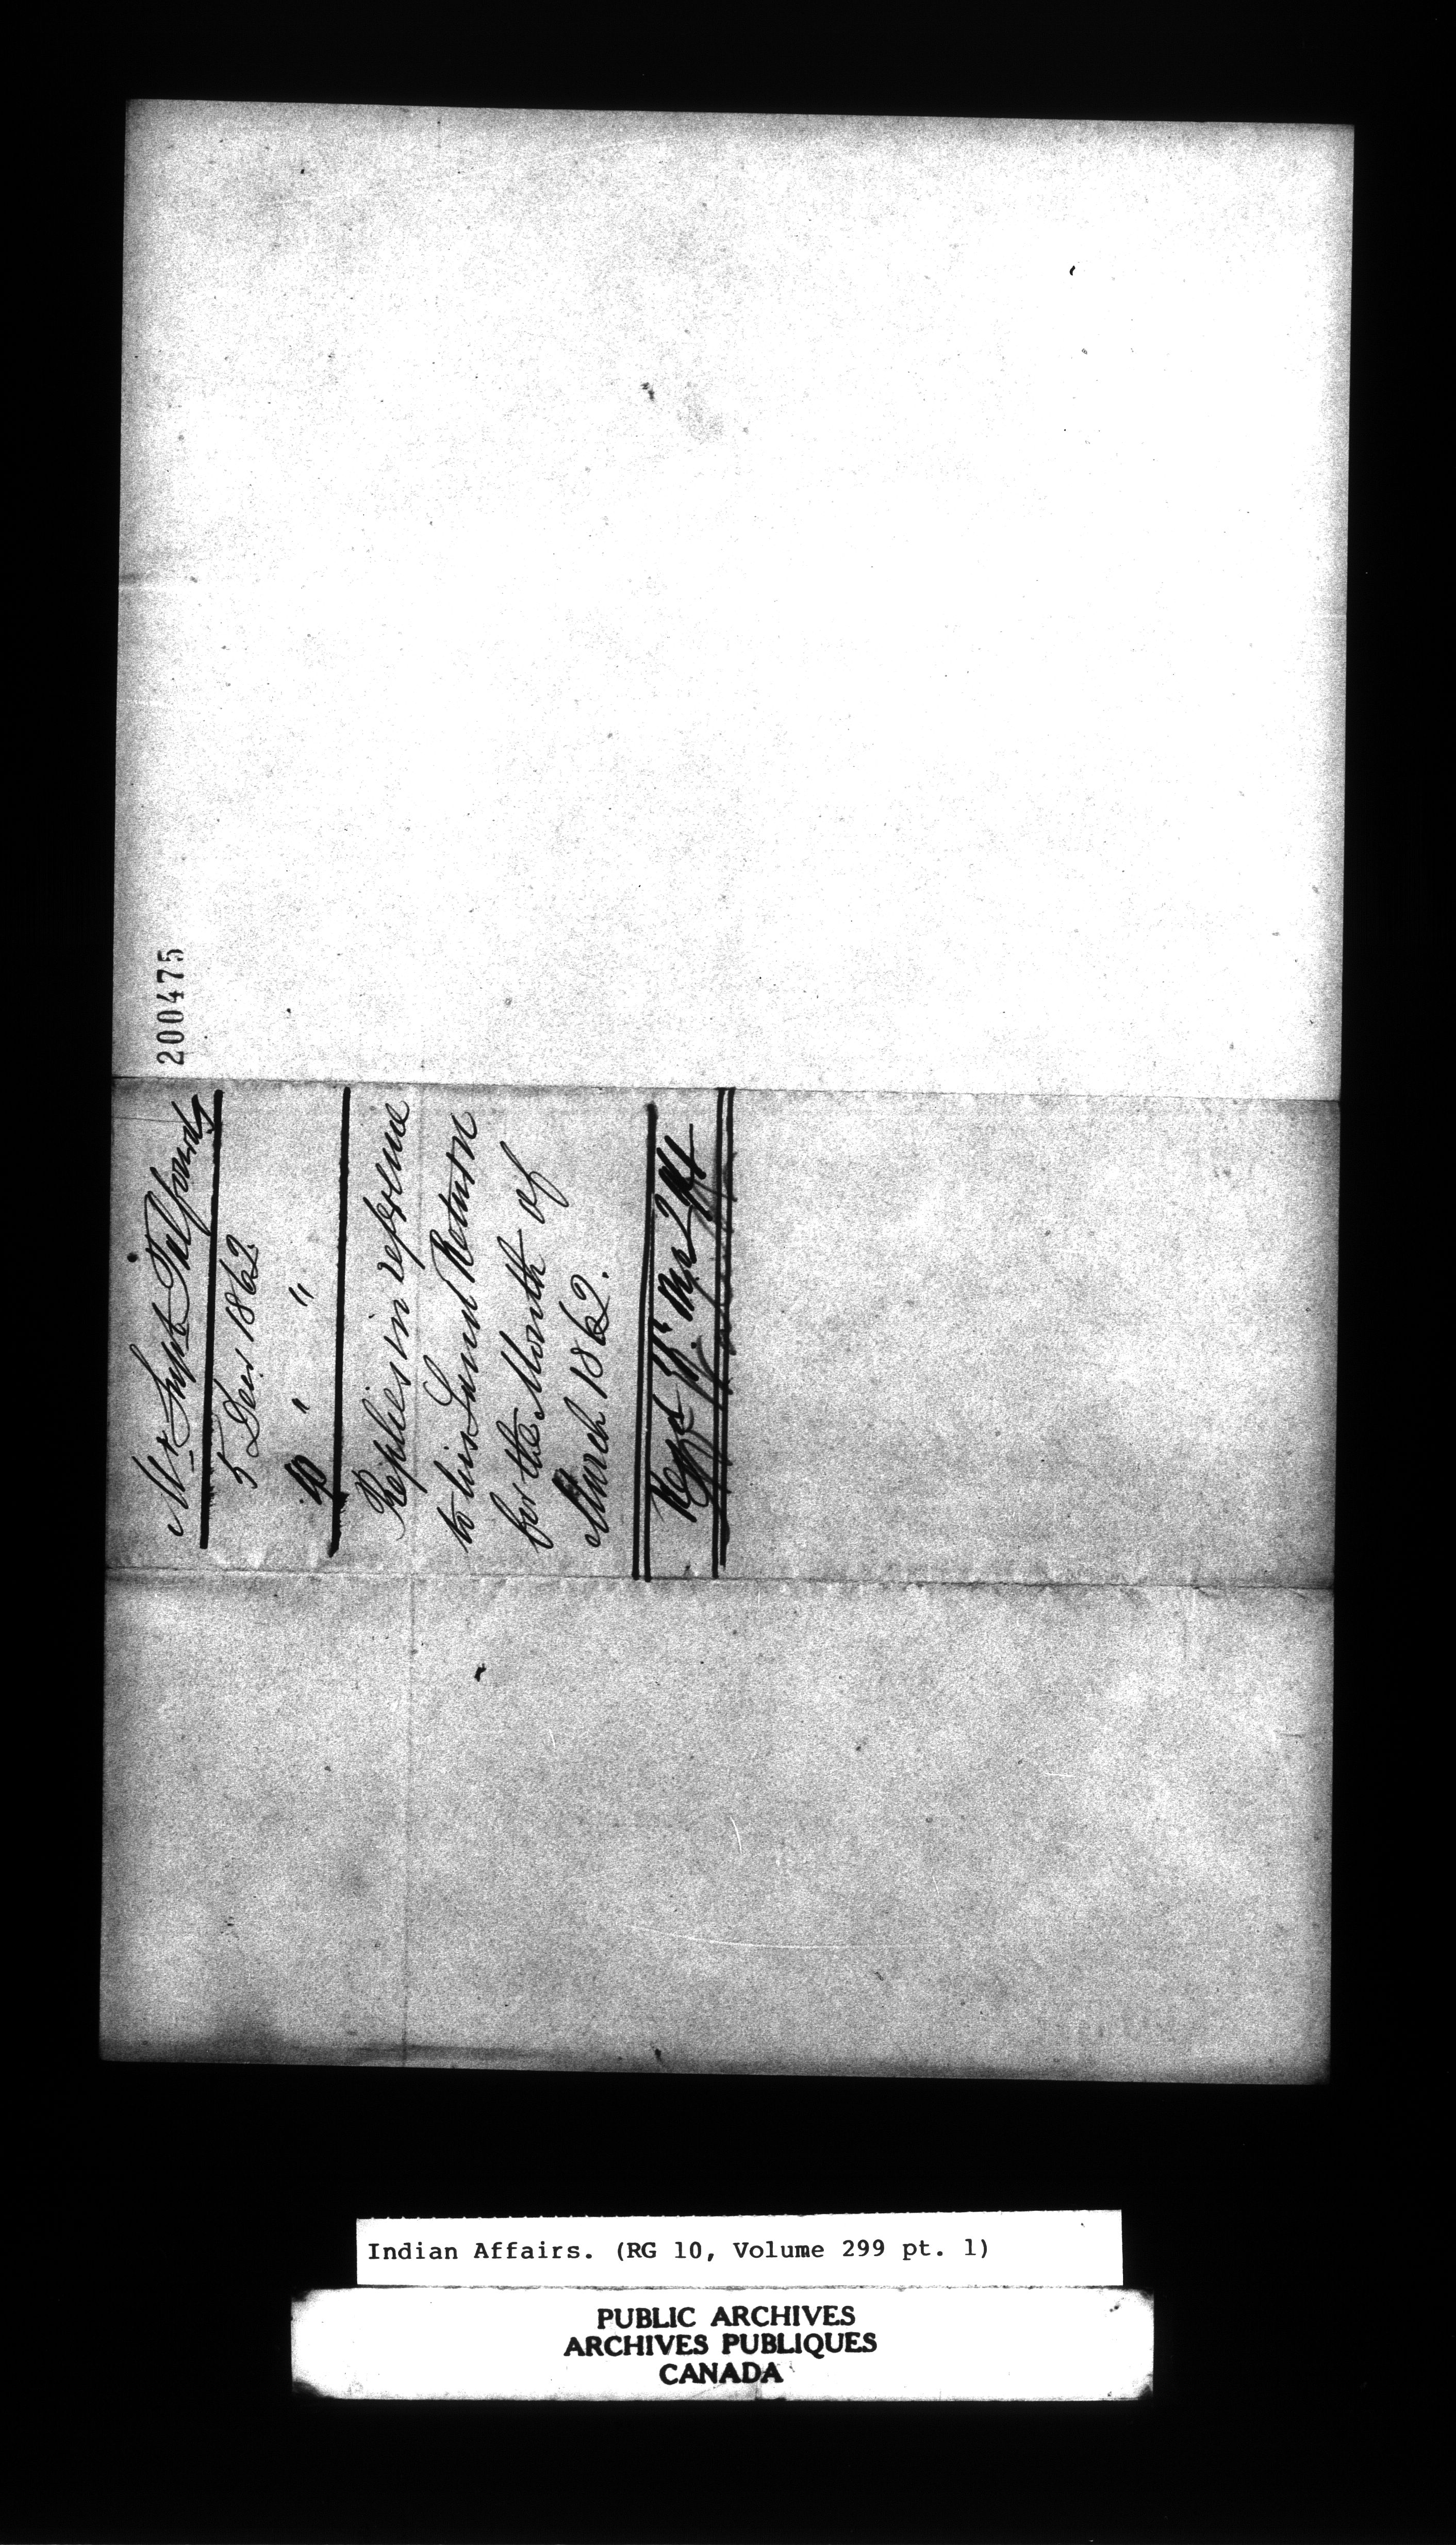 200475
Mr Supt Talfourd
5 Decr 1862
10 " "
Replies in reference
to his Land Return
for the Month of
March 1862.
Regd
Indian Affairs. (RG 10, Volume 299 pt. 1)
PUBLIC ARCHIVES
ARCHIVES PUBLIQUES
CANADA